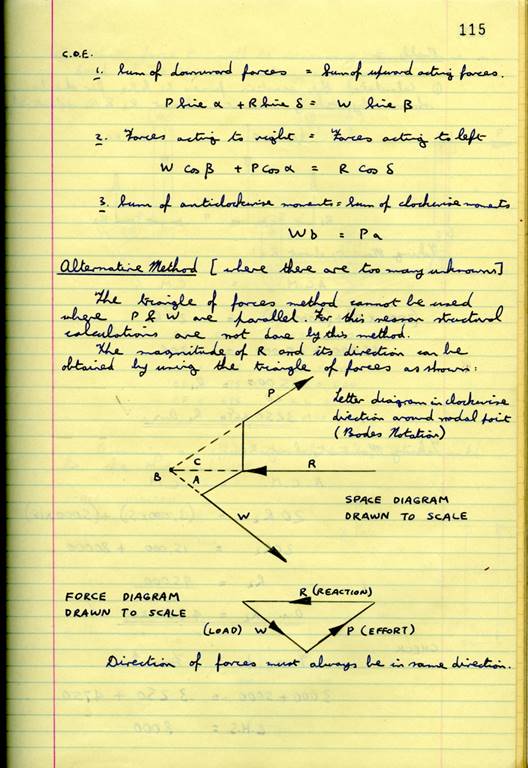 115
C.O.E.
1. Sum of downward forces = Sum of upward acting forces.
P Sine α + R Sine δ = W Sine β
2. Forces acting to right = Forces acting to left
W Cos β + P Cos α = R Cos δ
3. Sum of anticlockwise moments = Sum of clockwise moments
Wb = Pa
Alternative Method [where there are too many unknowns]
The triangle of forces method cannot be used
where P & W are parallel. For this reason structural
calculations are not done by this method.
The magnitude of R and its direction can be
obtained by using the triangle of forces as shown:
P
Letter diagram in clockwise
direction around nodal point
(Bodes Notation)
C
B
A
R
W
SPACE DIAGRAM
DRAWN TO SCALE
FORCE DIAGRAM
DRAWN TO SCALE
R (REACTION)
(LOAD) W
P (EFFORT)
Direction of forces must always be in same direction.